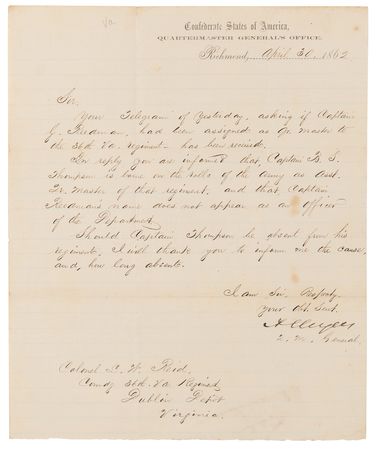 Va
Confederate States of America,
QUARTERMASTER GENERAL'S OFFICE,
Richmond, April 30, 1862
Sir,
Your Telegram of Yesterday, asking if Captain
J. Freedman, had been assigned as Qr. Master to
the 36th Va. regiment - has been received.
In reply you are informed that, Captain B. S.
Thompson is borne on the rolls of the Army as Asst.
Qr. Master of that regiment, and that Captain
Freedman's name does not appear as an officer
of the Department.
Should Captain Thompson be absent from his
regiment, I will thank you to inform me the cause,
and, how long absent.
I am Sir, Respectly
your Obt. Servt.
A C Myers
Q. M. General
Colonel L. W. Reid,
Comdg 36th Va Regiment
Dublin Depot
Virginia.